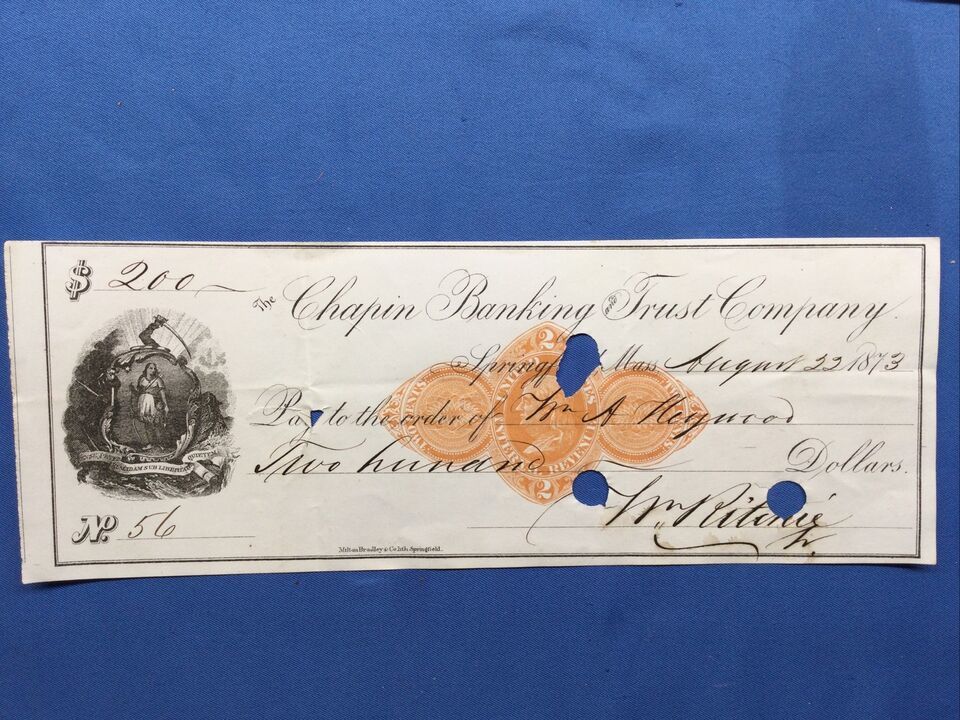 $ 200
The Chapin Banking and Trust Company.
Mass August 22 1873
Pay to the order of Wm A Heywood
Two hundred Dollars.
PLACIDAM SUB LIBERTATE QUIETEM
2
2
REVENUE
Wm Ritchie
No. 56
Milton Bradley & Co. lith Springfield.